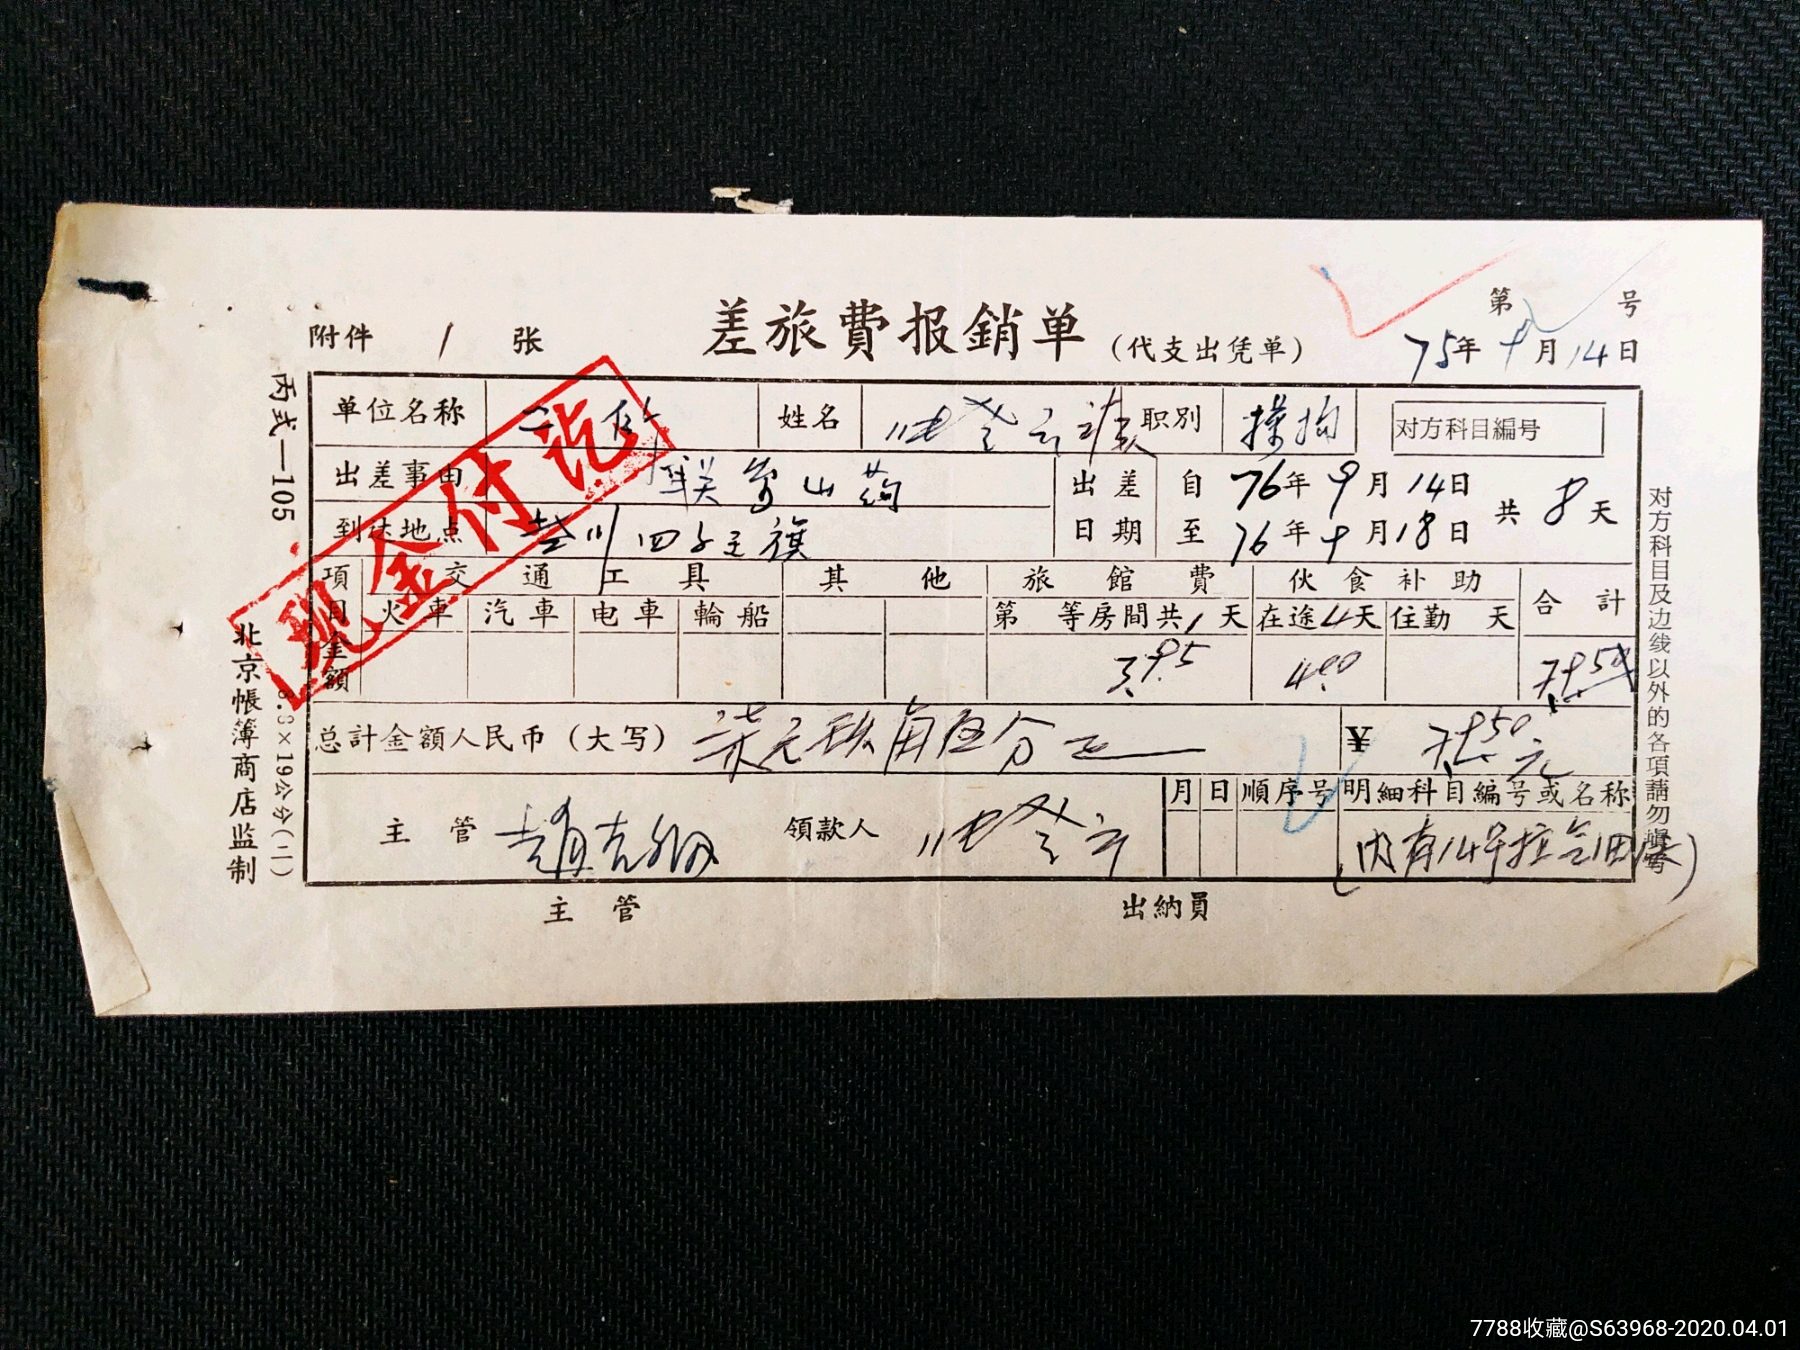 差旅費报銷单 (代支出凭单)
第 号
附件 1 张
75年 9月 14日
丙式—105
单位名称 二 姓名 职别 对方科目編号
出差事由 联 山药 出差日期 自 76年9月14日 共 8 天
到达地点 四子王旗 至 76年9月18日
現金付訖
項目 交通工具 其他 旅館費 伙食补助 合計
火車 汽車 电車 輪船 第 等房間共1天 在途4天 住勤 天
金額 3.95 4.00
总計金額人民币(大写) 柒元玖角伍分正 ¥ 元
月 日 順序号 明細科目編号或名称
主管 趙 領款人
(内有14号
主管 出納員
对方科目及边线以外的各項請勿填写
北京帳簿商店监制
8.3×19公分(二)
7788收藏@S63968-2020.04.01